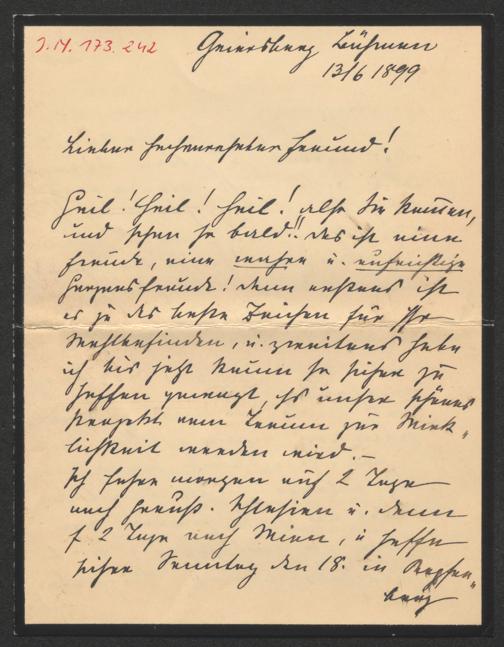 J.N. 173.242
Geiersberg Böhmen
13/6 1899
Lieber hochverehrter Freund!
Heil! Heil! Heil! also Sie kommen,
und schon so bald!! das ist eine
Freude, eine wahre u. aufrichtige
Herzensfreude! denn erstens ist
es ja das beste Zeichen für Ihr
Wohlbefinden, u. zweitens habe
ich bis jetzt kaum so sicher zu
hoffen gewagt, ob unser schönes
Projekt vom Traum zur Wirk-
lichkeit werden wird. –
Ich fahre morgen auf 2 Tage
nach Preuß. Schlesien u. dann
f 2 Tage nach Wien, u hoffe
sicher Sonntag den 18. in
berg